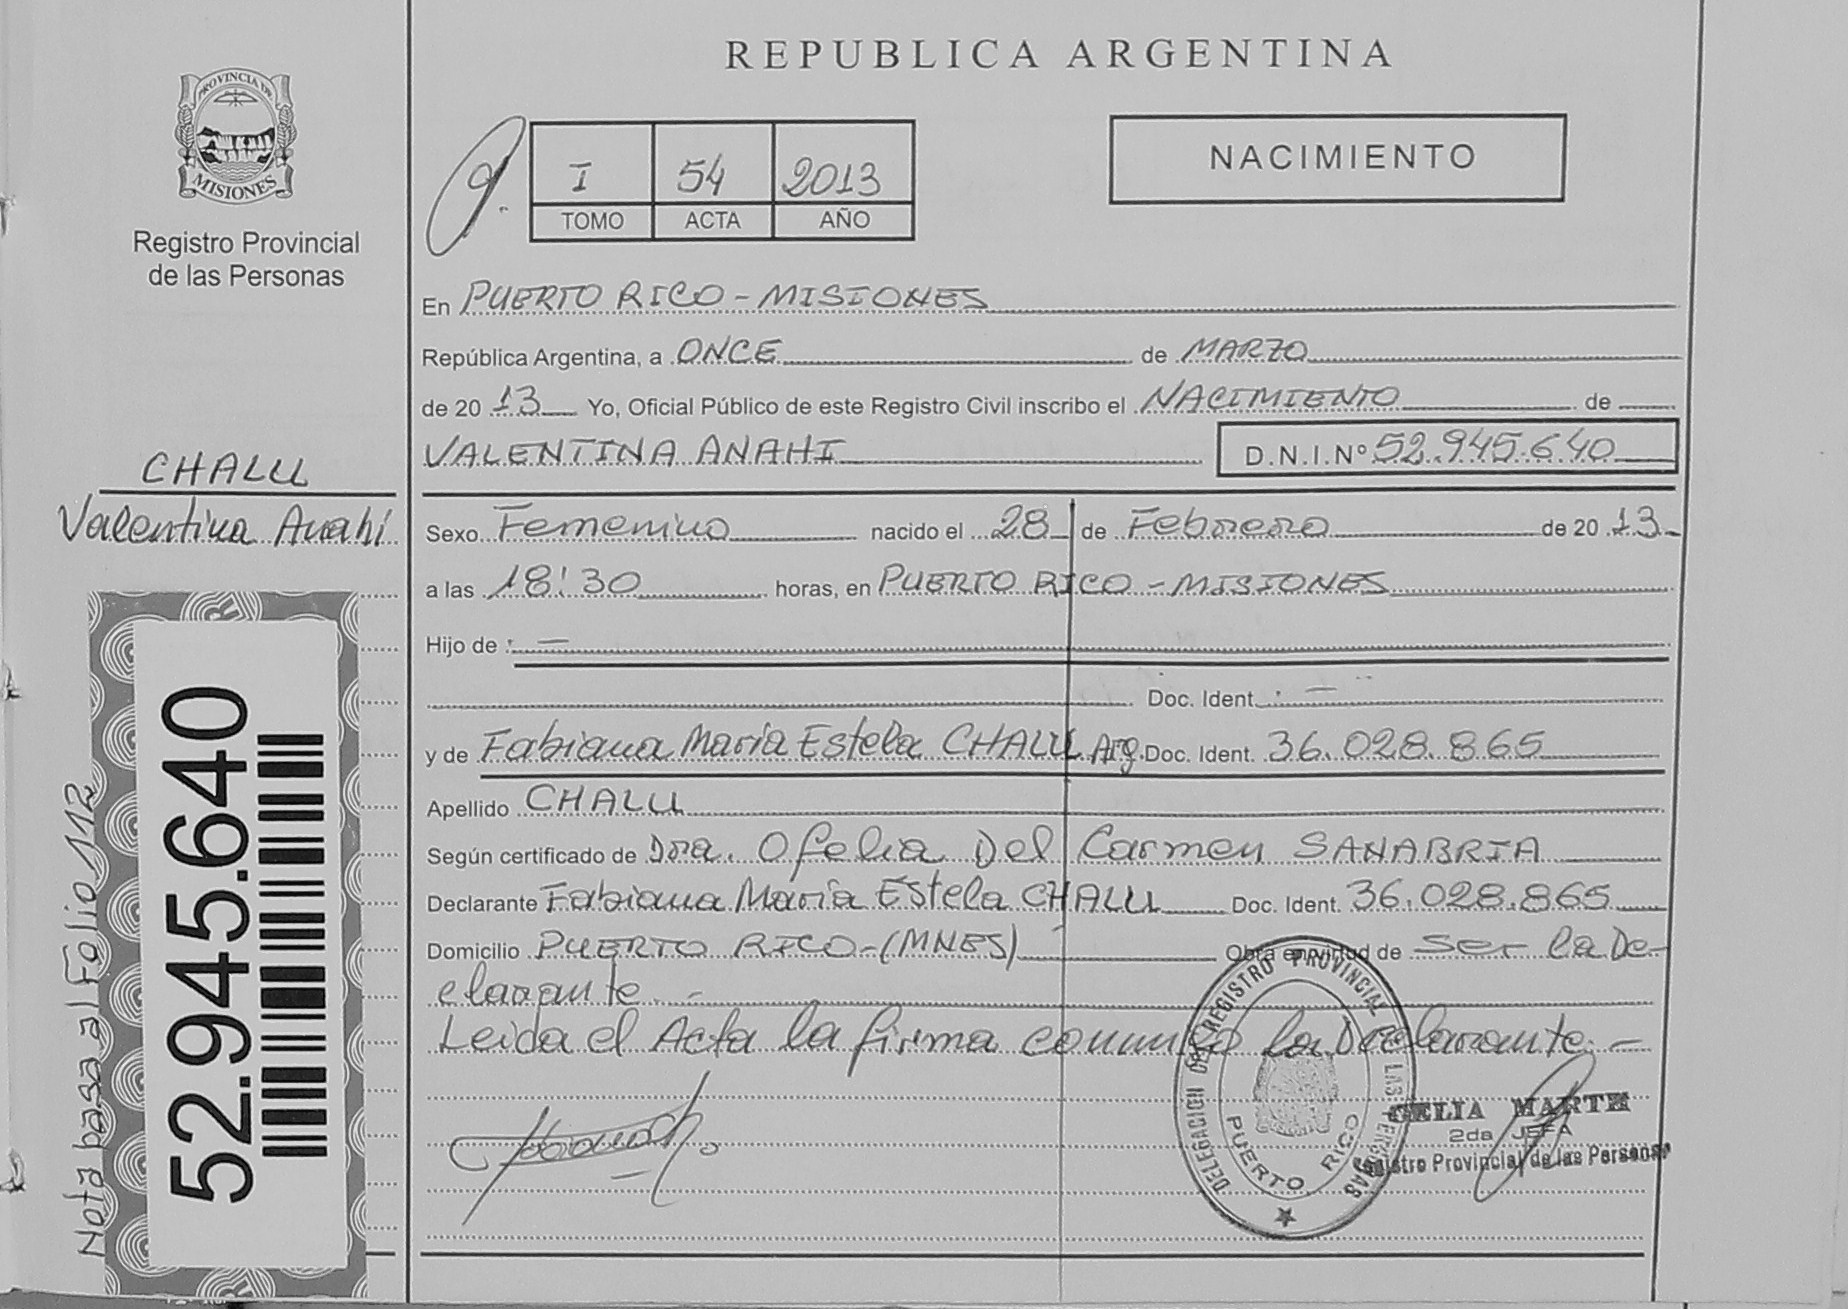 PROVINCIA DE
MISIONES
Registro Provincial
de las Personas
CHALU
Valentina Anahí
52.945.640
Nota pasa al Folio 112
REPUBLICA ARGENTINA
I 54 2013
TOMO ACTA AÑO
NACIMIENTO
En PUERTO RICO - MISIONES
República Argentina, a ONCE de MARZO
de 20 13 Yo, Oficial Público de este Registro Civil inscribo el NACIMIENTO de
VALENTINA ANAHI D.N.I.Nº 52.945.640
Sexo Femenino nacido el 28 de Febrero de 20 13
a las 18:30 horas, en PUERTO RICO - MISIONES
Hijo de : —
Doc. Ident. : —
y de Fabiana María Estela CHALU Arg. Doc. Ident. 36.028.865
Apellido CHALU
Según certificado de Dra. Ofelia Del Carmen SANABRIA
Declarante Fabiana María Estela CHALU Doc. Ident. 36.028.865
Domicilio PUERTO RICO-(MNES) Obra en virtud de ser la De-
clarante. -
Leida el Acta la firma conmigo la Declarante. -
DELEGACION DEL REGISTRO PROVINCIAL DE LAS PERSONAS
PUERTO RICO
CELIA MARTE
2da JEFA
Registro Provincial de las Personas